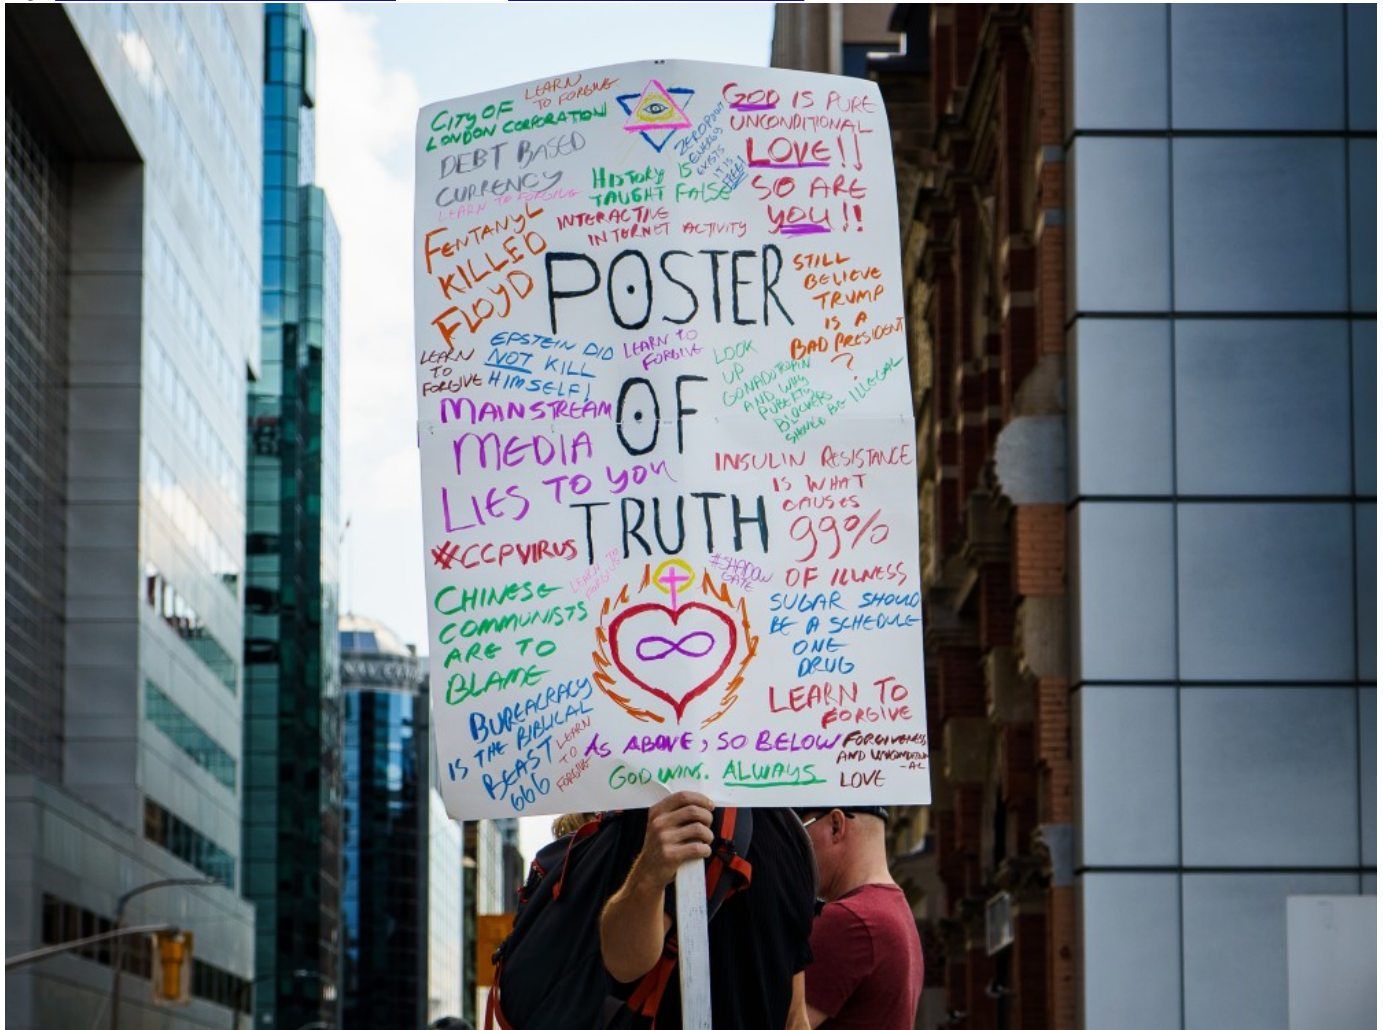 CITY OF
LONDON CORPORATION
LEARN
TO FORGIVE
DEBT BASED
CURRENCY
LEARN TO FORGIVE
HISTORY IS
TAUGHT FALSE
ZEROPOINT
ENERGY
EXISTS
IT IS
FREE!
GOD IS PURE
UNCONDITIONAL
LOVE!!
SO ARE
YOU!!
INTERACTIVE
INTERNET ACTIVITY
FENTANYL
KILLED
FLOYD
POSTER
OF
TRUTH
STILL
BELIEVE
TRUMP
IS A
BAD PRESIDENT
?
LEARN
TO
FORGIVE
EPSTEIN DID
NOT KILL
HIMSELF!
LEARN TO
FORGIVE
LOOK
UP
GONADOTROPIN
AND WHY
PUBERTY
BLOCKERS
SHOULD BE ILLEGAL
MAINSTREAM
MEDIA
LIES TO YOU
INSULIN RESISTANCE
IS WHAT
CAUSES
99%
OF ILLNESS
#CCPVIRUS
LEARN TO
FORGIVE
#SHADOW
GATE
CHINESE
COMMUNISTS
ARE TO
BLAME
SUGAR SHOULD
BE A SCHEDULE
ONE
DRUG
LEARN TO
FORGIVE
BUREACRACY
IS THE BIBLICAL
BEAST
666
LEARN
TO
FORGIVE
AS ABOVE, SO BELOW
GOD WINS. ALWAYS
FORGIVENESS
AND
LOVE